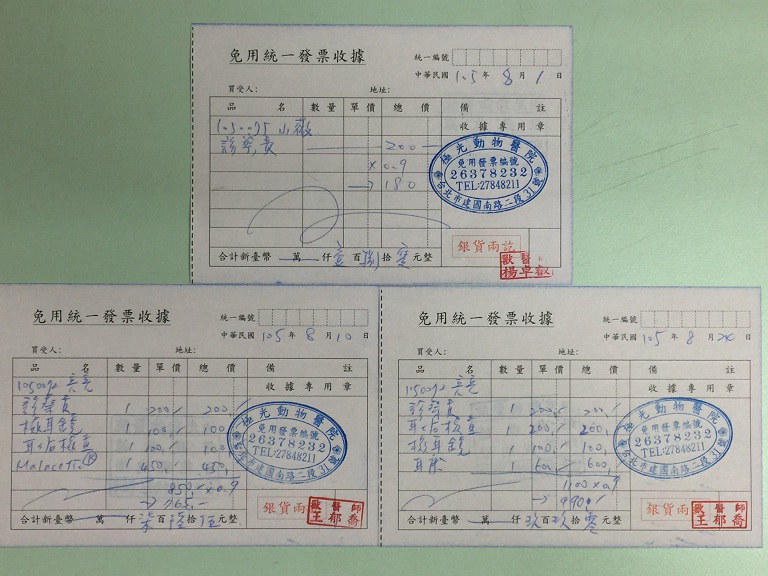 免用統一發票收據
統一編號
中華民國 105 年 8 月 1 日
買受人： 地址：
品 名 數量 單價 總價 備 註
收據專用章
105-075 小薇
診察費 200
x 0.9
→ 180
極光動物醫院
免用發票編號
26378232
TEL:27848211
台北市建國南路二段31號
銀貨兩訖
獸醫師
楊卓叡
合計新臺幣 萬 仟 壹 百 捌 拾 零 元整
免用統一發票收據
統一編號
中華民國 105 年 8 月 10 日
買受人： 地址：
品 名 數量 單價 總價 備 註
收據專用章
105092 亮亮
診察費 1 200/ 200/
檢耳鏡 1 100/ 100/
耳垢檢查 1 100/ 100/
1 450/ 450/
850/ x 0.9
→ 765/
極光動物醫院
免用發票編號
26378232
TEL:27848211
台北市建國南路二段31號
銀貨兩
獸醫師
王郁喬
合計新臺幣 萬 仟 柒 百 陸 拾 伍 元整
免用統一發票收據
統一編號
中華民國 105 年 8 月 24 日
買受人： 地址：
品 名 數量 單價 總價 備 註
收據專用章
105092 亮亮
診察費 1 200/ 200/
耳垢檢查 1 200/ 200/
檢耳鏡 1 100/ 100/
耳藥 1 600/ 600/
1100 x 0.9
→ 990/
極光動物醫院
免用發票編號
26378232
TEL:27848211
台北市建國南路二段31號
銀貨兩
獸醫師
王郁喬
合計新臺幣 萬 仟 玖 百 玖 拾 零 元整